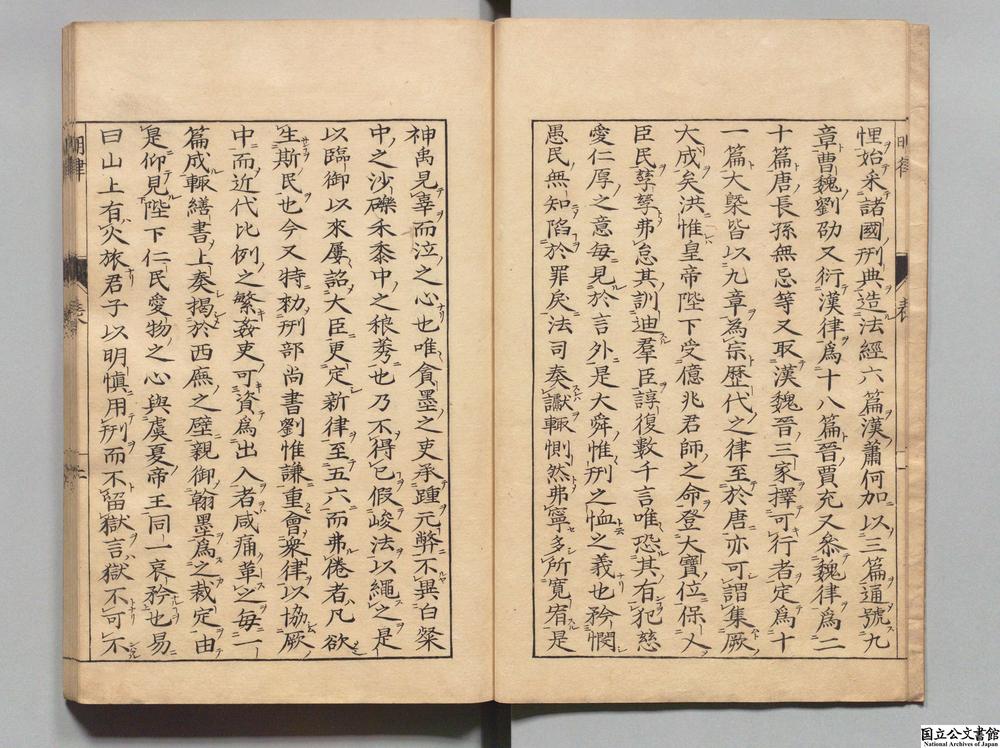 悝始采諸國刑典造法經六篇漢蕭何加以三篇通號九
章曹魏劉劭又衍漢律爲十八篇晉賈充又叅魏律爲二
十篇唐長孫無忌等又取漢魏晉三家擇可行者定爲十
一篇大槩皆以九章爲宗歷代之律至於唐亦可謂集厥
大成矣洪惟皇帝陛下受億兆君師之命登大寶位保乂
臣民孳孳弗怠其訓迪羣臣諄復數千言唯恐其有犯慈
愛仁厚之意每見於言外是大舜惟刑之恤之義也矜憫
愚民無知陷於罪戾法司奏讞輒惻然弗寧多所寬宥是
神禹見辜而泣之心也唯貪墨之吏承踵元弊不異白粲
中之沙礫禾黍中之稂莠也乃不得已假峻法以繩之是
以臨御以來屢詔大臣更定新律至五六而弗倦者凡欲
生斯民也今又特勑刑部尚書劉惟謙重會衆律以協厥
中而近代比例之繁姦吏可資爲出入者咸痛革之每一
篇成輒繕書上奏揭於西廡之壁親御翰墨爲之裁定由
是仰見陛下仁民愛物之心與虞夏帝王同一哀矜也易
曰山上有火旅君子以明愼用刑而不留獄言獄不可不
明律
國立公文書館
National Archives of Japan